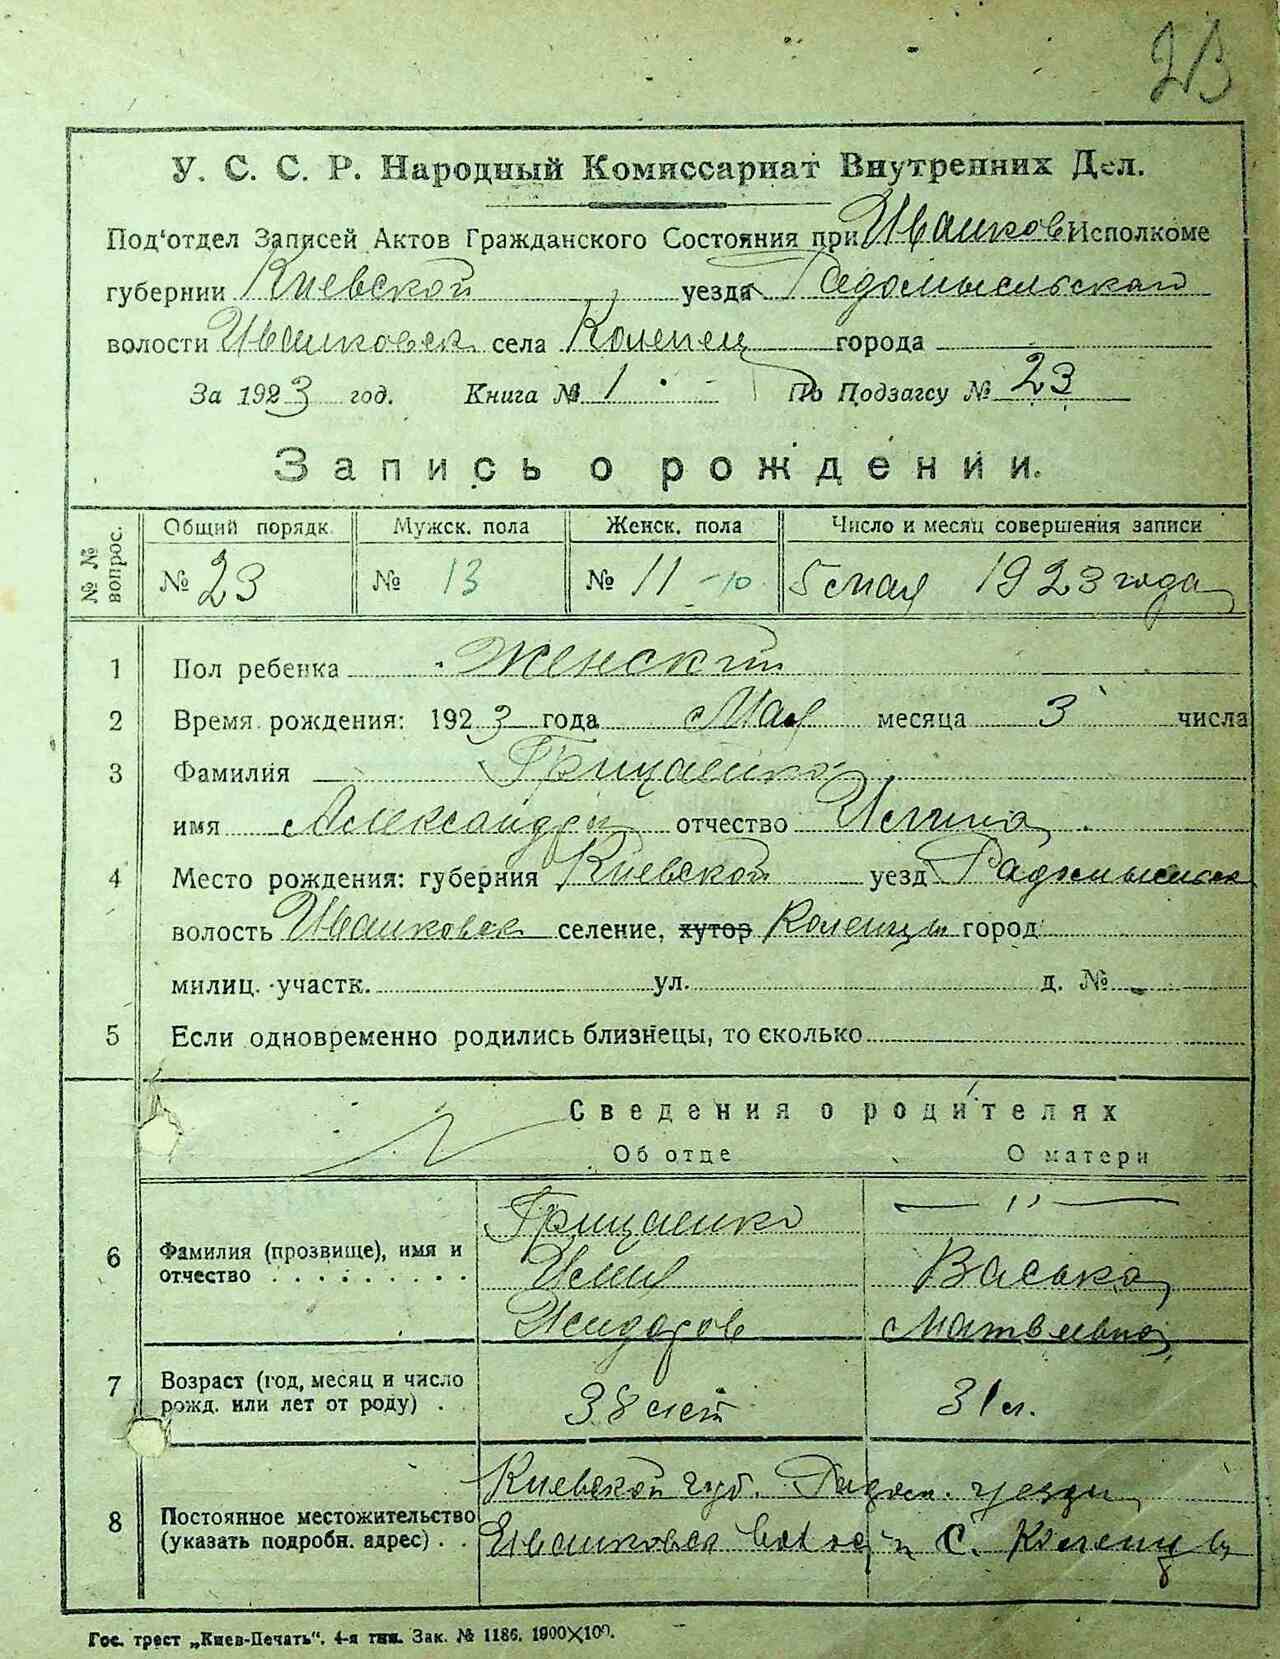 23
У. С. С. Р. Народный Комиссариат Внутренних Дел.
Под'отдел Записей Актов Гражданского Состояния при Иванков Исполкоме
губернии Киевской уезда Радомысльскаго
волости Иванковск села Коленец города
За 1923 год. Книга № 1 По Подзагсу № 23
Запись о рождении.
№ № вопрос. Общий порядк. Мужск. пола Женск. пола Число и месяц совершения записи
№ 23 № 13 № 11 - 10 5 мая 1923 года
1 Пол ребенка Женский
2 Время рождения: 1923 года Мая месяца 3 числа
3 Фамилия Грищенко
имя Александра отчество
4 Место рождения: губерния Киевской уезд Радомысльск
волость Иванковск селение, хутор Коленцы город
милиц. участк. ул. д. №
5 Если одновременно родились близнецы, то сколько
Сведения о родителях
Об отце О матери
Грищенко — 〃 —
6 Фамилия (прозвище), имя и
отчество . . . . . . . . . Васька
Исидоров Матвеевна
7 Возраст (год, месяц и число
рожд. или лет от роду) . . 38 лет 31 л.
Киевской губ. Радом. уезда
8 Постоянное местожительство
(указать подробн. адрес) . . Иванковск волости С. Коленцы
Гос. трест „Киев-Печать“. 4-я тип. Зак. № 1186. 1900×100.